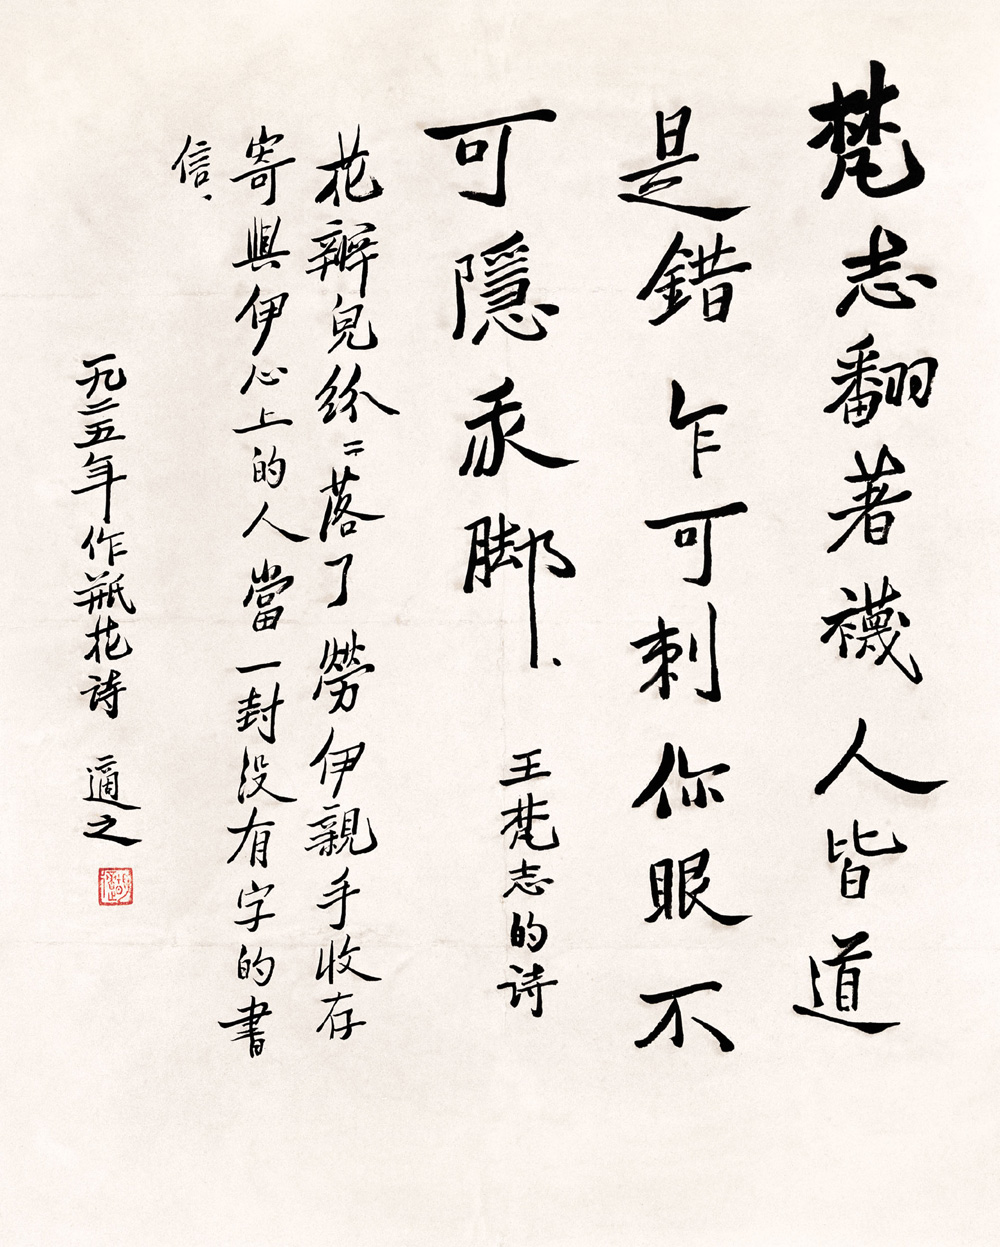 梵志翻著襪人皆道
是錯乍可刺你眼不
可隱我脚、
王梵志的詩
花瓣兒紛〻落了勞伊親手收存
寄與伊心上的人當一封没有字的書
信、
一九二五年作瓶花詩 適之